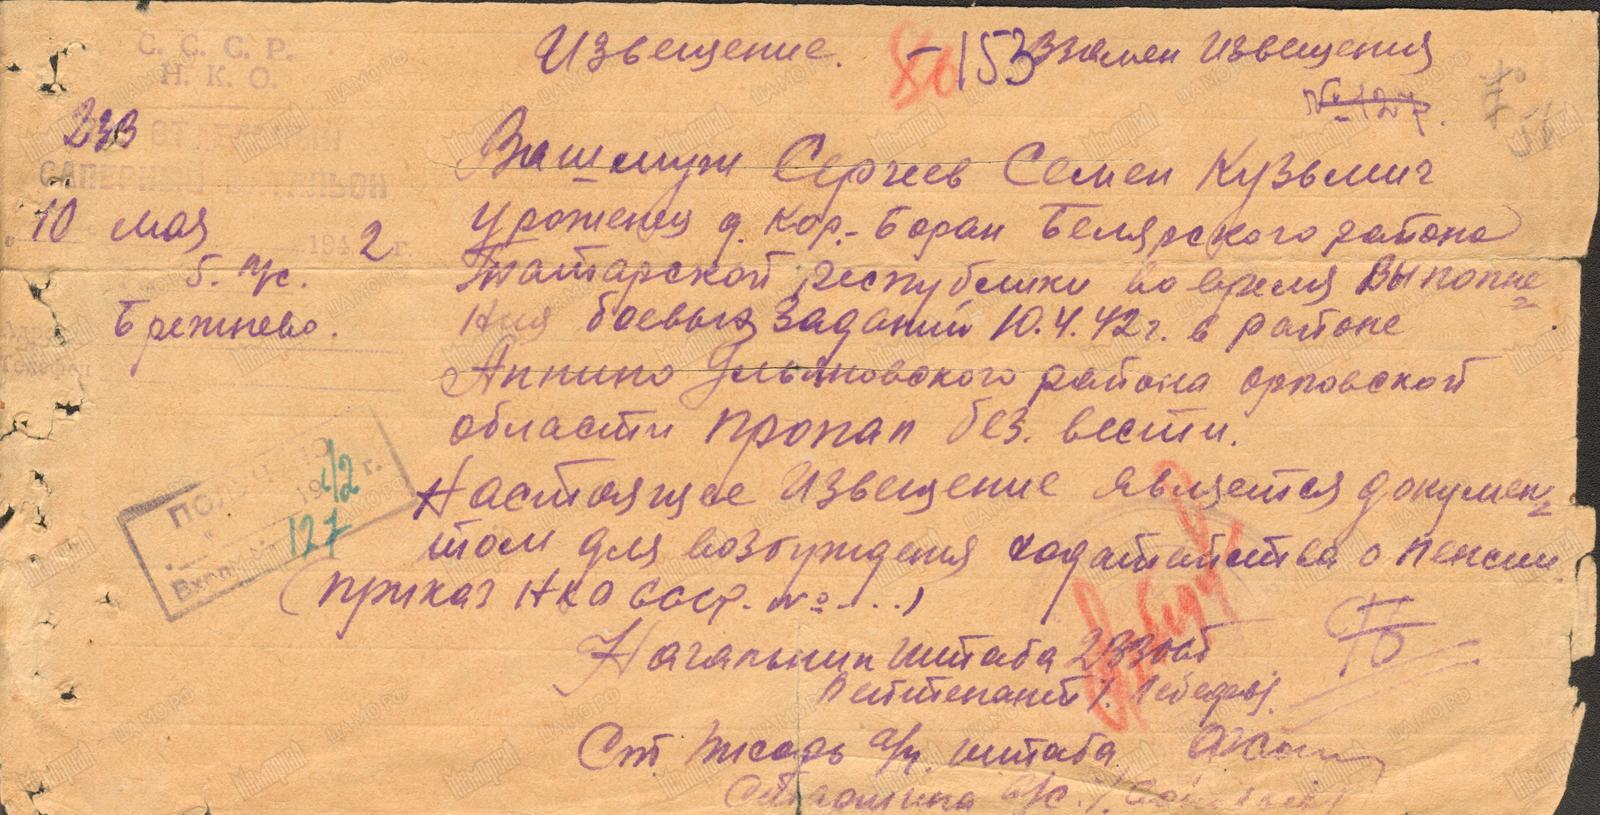 С. С. С. Р.
Н. К. О.
233
ОТДЕЛЬНЫЙ
САПЕРНЫЙ БАТАЛЬОН
10 мая 1942 г.
б. п/с.
Брежнево.
Извещение. - 153 Взамен извещения
№ 127.
Ваш муж Сергеев Семен Кузьмич
уроженец д. Кор.-Боран Белярского района
Татарской республики во время выполне=
ния боевых заданий 10.4.42 г. в районе
Аннино Ульяновского района орловской
области пропал без. вести.
Настоящее извещение является докумен=
том для возбуждения ходатайства о пенсии.
(приказ НКО СССР. № ...)
Начальник штаба 233 осб
Лейтенант /. Лебедев/.
Ст. писарь с/ч. штаба
Старшина
ПОЛУЧЕНО
1942 г.
Входящий 127